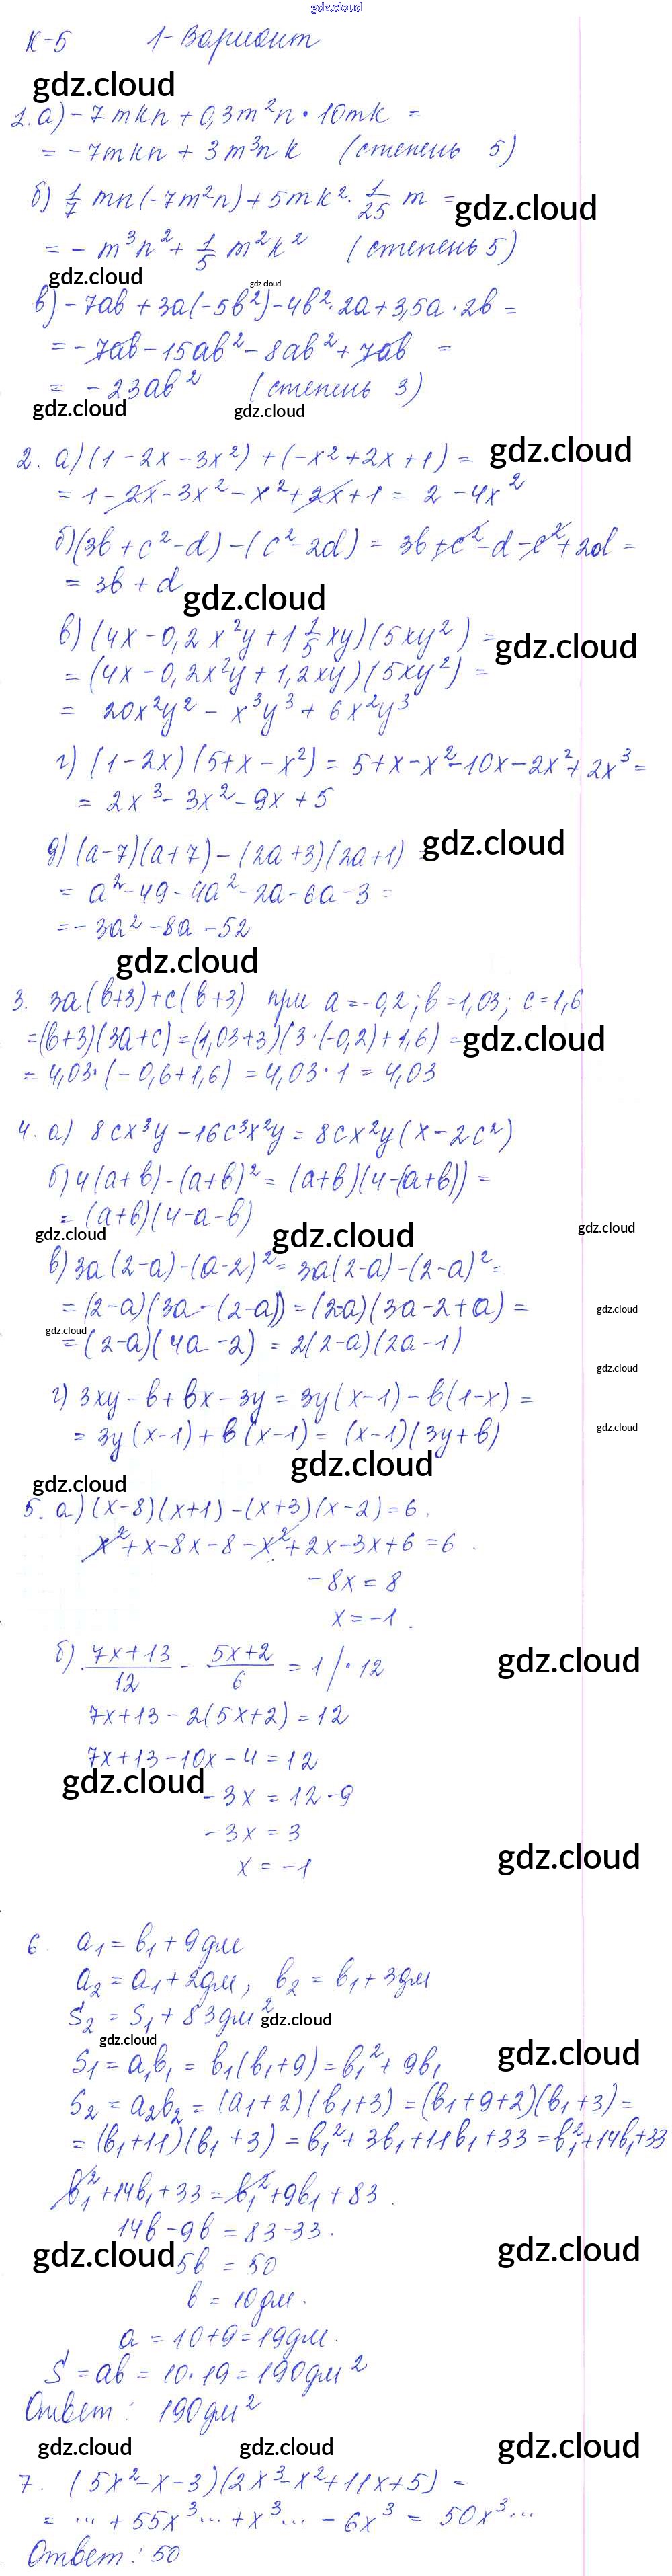 gdz.cloud
К-5 1-Вариант
gdz.cloud
1. а) -7mkn + 0,3m²n · 10mk =
= -7mkn + 3m³nk (степень 5)
б) 1/7 mn(-7m²n) + 5mk² · 1/25 m =
gdz.cloud
= -m³n² + 1/5 m²k² (степень 5)
gdz.cloud
gdz.cloud
в) -7ab + 3a(-5b²) - 4b² · 2a + 3,5a · 2b =
= -7ab - 15ab² - 8ab² + 7ab =
= -23ab² (степень 3)
gdz.cloud gdz.cloud
2. а) (1 - 2x - 3x²) + (-x² + 2x + 1) =
gdz.cloud
= 1 - 2x - 3x² - x² + 2x + 1 = 2 - 4x²
б) (3b + c² - d) - (c² - 2d) = 3b + c² - d - c² + 2d =
= 3b + d
gdz.cloud
в) (4x - 0,2x²y + 1 1/5 xy)(5xy²) =
gdz.cloud
= (4x - 0,2x²y + 1,2xy)(5xy²) =
= 20x²y² - x³y³ + 6x²y³
г) (1 - 2x)(5 + x - x²) = 5 + x - x² - 10x - 2x² + 2x³ =
= 2x³ - 3x² - 9x + 5
д) (a - 7)(a + 7) - (2a + 3)(2a + 1) =
gdz.cloud
= a² - 49 - 4a² - 2a - 6a - 3 =
= -3a² - 8a - 52
gdz.cloud
3. 3a(b+3) + c(b+3) при a = -0,2; b = 1,03; c = 1,6
= (b+3)(3a+c) = (1,03+3)(3·(-0,2)+1,6) =
gdz.cloud
= 4,03 · (-0,6 + 1,6) = 4,03 · 1 = 4,03
4. а) 8cx³y - 16c³x²y = 8cx²y(x - 2c²)
б) 4(a+b) - (a+b)² = (a+b)(4-(a+b)) =
= (a+b)(4-a-b)
gdz.cloud gdz.cloud gdz.cloud
в) 3a(2-a) - (a-2)² = 3a(2-a) - (2-a)² =
= (2-a)(3a-(2-a)) = (2-a)(3a-2+a) =
gdz.cloud
gdz.cloud
= (2-a)(4a-2) = 2(2-a)(2a-1)
gdz.cloud
г) 3xy - b + bx - 3y = 3y(x-1) - b(1-x) =
gdz.cloud
= 3y(x-1) + b(x-1) = (x-1)(3y+b)
gdz.cloud
gdz.cloud
5. а) (x-8)(x+1) - (x+3)(x-2) = 6.
x² + x - 8x - 8 - x² + 2x - 3x + 6 = 6.
-8x = 8
x = -1.
б) (7x+13)/12 - (5x+2)/6 = 1 /·12
gdz.cloud
7x + 13 - 2(5x+2) = 12
7x + 13 - 10x - 4 = 12
gdz.cloud
-3x = 12 - 9
-3x = 3
gdz.cloud
x = -1
6. a₁ = b₁ + 9дм
a₂ = a₁ + 2дм, b₂ = b₁ + 3дм
S₂ = S₁ + 83дм²
gdz.cloud
gdz.cloud
gdz.cloud
S₁ = a₁b₁ = b₁(b₁+9) = b₁² + 9b₁
S₂ = a₂b₂ = (a₁+2)(b₁+3) = (b₁+9+2)(b₁+3) =
= (b₁+11)(b₁+3) = b₁² + 3b₁ + 11b₁ + 33 = b₁² + 14b₁ + 33
b₁² + 14b₁ + 33 = b₁² + 9b₁ + 83.
14b - 9b = 83 - 33.
gdz.cloud gdz.cloud
5b = 50
b = 10дм.
a = 10 + 9 = 19дм.
S = ab = 10 · 19 = 190дм²
Ответ: 190дм²
gdz.cloud gdz.cloud gdz.cloud
7. (5x² - x - 3)(2x³ - x² + 11x + 5) =
= ... + 55x³... + x³... - 6x³ = 50x³...
Ответ: 50
gdz.cloud